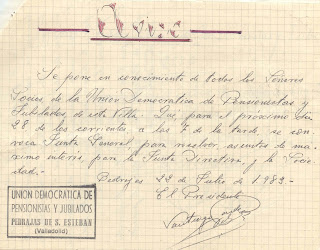 Aviso
Se pone en conocimiento de todos los Señores
Socios de la Union Democratica de Pensionistas y
Jubilados de esta Villa: Que, para el próximo dia
28 de los corrientes, a las 7 de la tarde, se con-
voca Junta General, para resolver, asuntos de ma-
ximo interés, para la Junta Directora, y la Socie-
dad.-
Pedrajas 22 de Julio de 1982.-
El Presidente
UNION DEMOCRATICA DE
PENSIONISTAS Y JUBILADOS
PEDRAJAS DE S. ESTEBAN
(Valladolid)